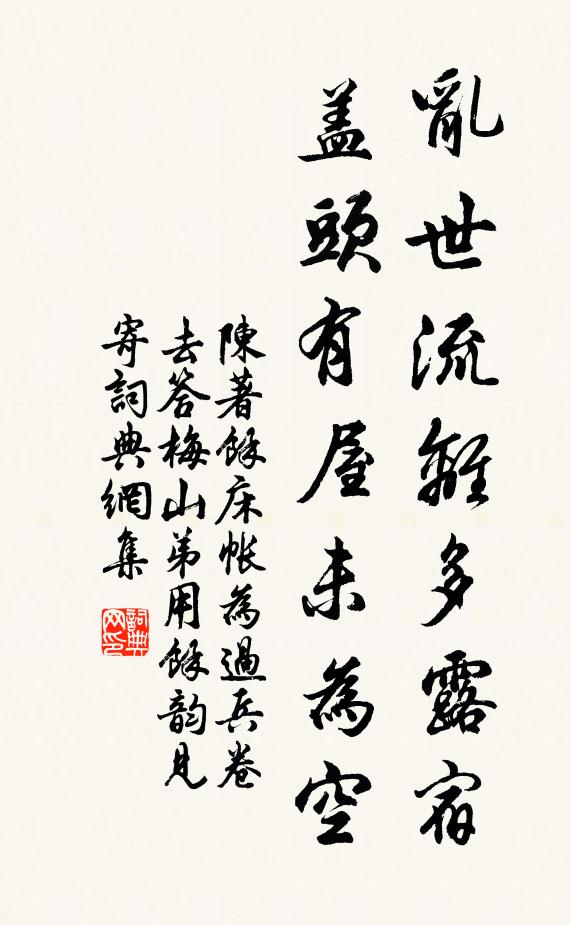 亂世流離多露宿
蓋頭有屋未為空
陳著餘床帳為過兵卷
去答梅山弟用餘韵見
寄詞典網集
詞典网印